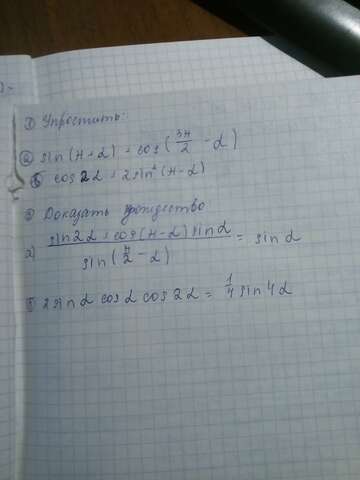 ① Упростить:
а) sin(π+α)+cos(3π/2-α)
б) cos2α+2sin²(π-α)
② Доказать тождество
а) sin2α+cos(π-α)sinα / sin(π/2-α) = sinα
б 2sinα cosα cos2α = 1/4 sin4α